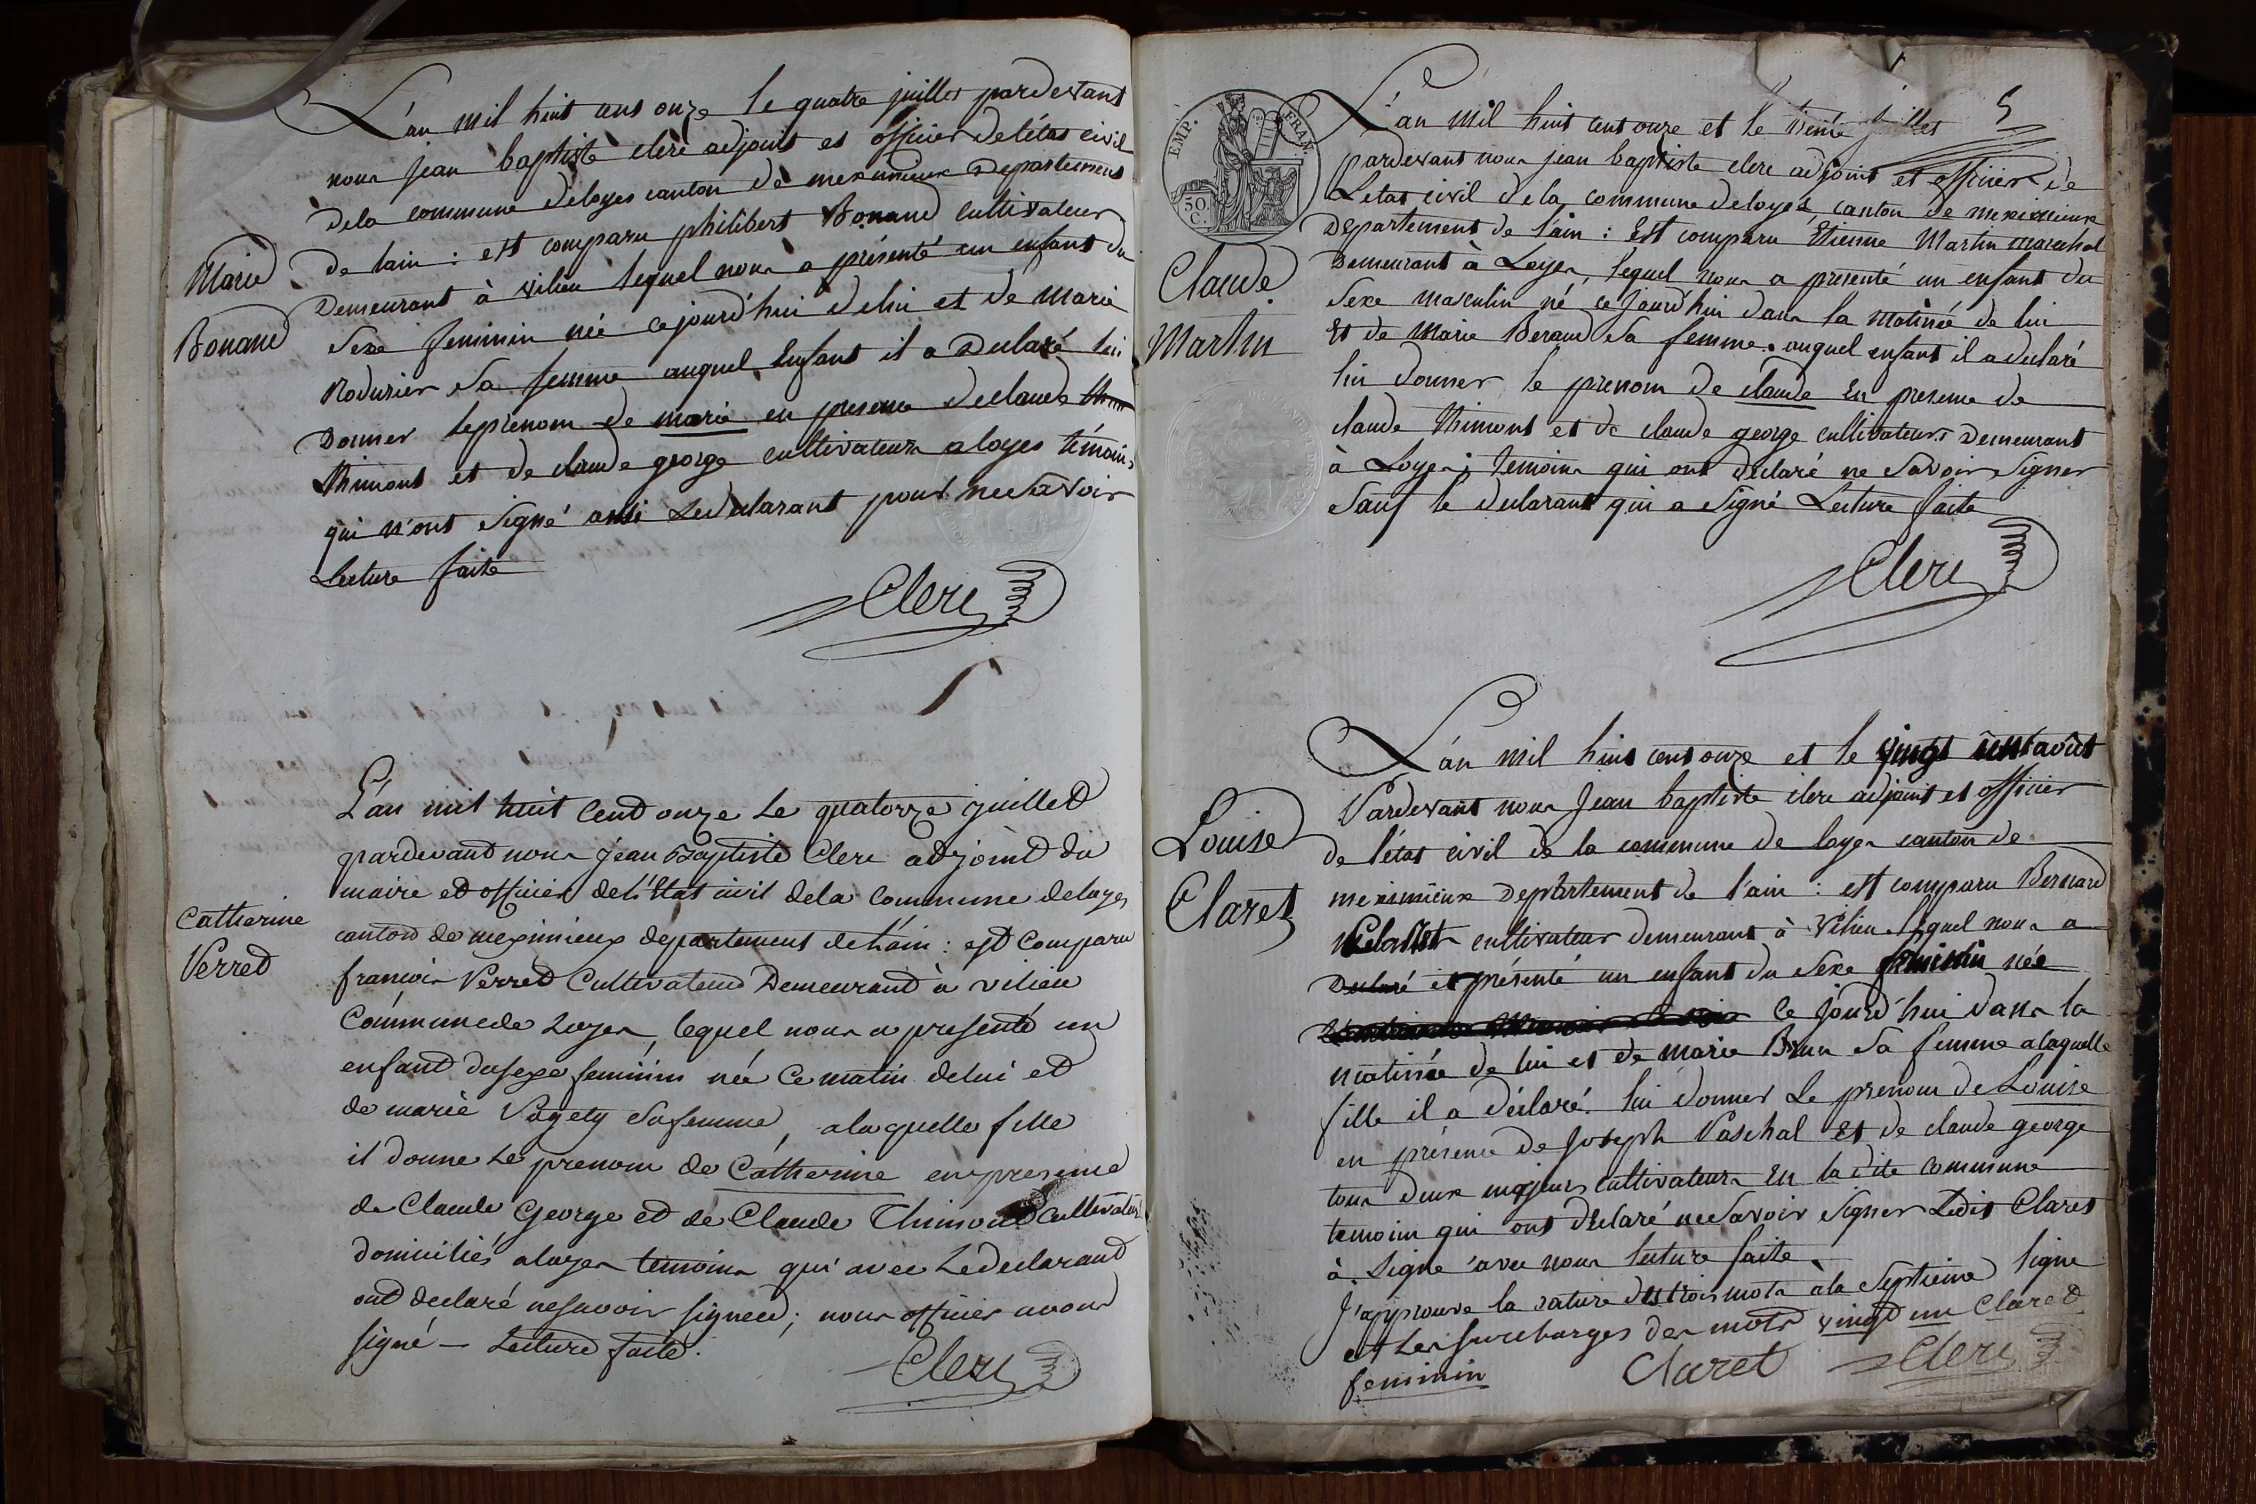 L'an mil huit cens onze le quatre juillet pardevant
nous jean baptiste clerc adjoint et officier de létat civil
dela commune deloyes canton de meximieux departement
de lain : est comparu philibert Bonand cultivateur
Demeurant à vilieu lequel nous a présenté un enfant du
sexe feminin née cejourd'hui delui et de Marie
Rodurier sa femme auquel Enfant il a Déclaré lui
Donner leprenom de marie en presence declaude
Thimont et de claude george cultivateurs a loyes témoins
qui n'ont signé ansi Ledéclarant pour nesavoir
Lecture faite
Clerc
Marie
Bonand
L'an mil huit Cent onze Le quatorze juillet
pardevant nous Jean Baptiste Clerc adjoint du
maire et officier de l'Etat civil dela Commune deloyes
canton de meximieux departement de L'ain : est Comparu
francois Verret Cultivateur Demeurant à vilieu
Commune de Loyes, lequel nous a presenté un
enfant du sexe feminin née Ce matin de lui et
de marie Vagety sa femme, a laquelle fille
il donne Le prenom de Catherine en presence
de Claude George et de Claude Thimont Cultivateurs
domiciliés a loyes temoins qui avec Le declarant
ont declaré ne savoir signer ; nous officier avons
signé — Lecture faite.
Clerc
Catherine
Verret
5
EMP. FRAN.
50. C.
L'an Mil huit cent onze et le trente juillet
pardevant nous jean baptiste clerc adjoint et officier de
L'état civil de la commune deloyes canton de meximieux
Département de l'ain : Est comparu Etienne Martin marechal
Demeurant à Loyes, lequel nous a présenté un enfant du
Sexe masculin né ce jourd'hui dans la Matinée de lui
Et de Marie Beraud sa femme. auquel enfant il a declaré
lui donner le prenom de claude En presence de
claude Thimont et de claude george cultivateurs Demeurant
à Loyes ; temoins qui ont declaré ne savoir signer
Sauf le declarant qui a signé Lecture faite
Clerc
Claude
Martin
L'an mil huit cent onze et le vingt un août
Pardevant nous Jean baptiste clerc adjoint et officier
de l'état civil de la commune de loyes canton de
meximieux Departement de l'ain : est comparu Bernard
Claret cultivateur demeurant à Vilieu lequel nous a
Declaré et présenté un enfant du sexe feminin née
Ce jourd'hui dans la
matinée de lui et de marie Brun sa femme a laquelle
fille il a déclaré. lui donner Le prenom de Louise
en présence de Joseph Paschal Et de claude george
tous deux majeurs cultivateurs En la dite commune
temoins qui ont declaré ne savoir signer Ledit Claret
à signé avec nous lecture faite
J'approuve la rature des trois mots à la Septieme ligne
et Les surcharges des mots vingt un Claret
feminin
Claret Clerc
Louise
Claret